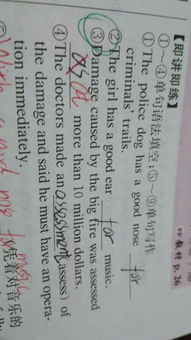 【即讲即练】
①~④单句语法填空;⑤~⑨单句写作
①The police dog has a good nose for
criminals' trails.
②The girl has a good ear for music.
③Damage caused by the big fire was assessed
at more than 10 million dollars.
④The doctors made an assessment (assess) of
the damage and said he must have an opera-
tion immediately.